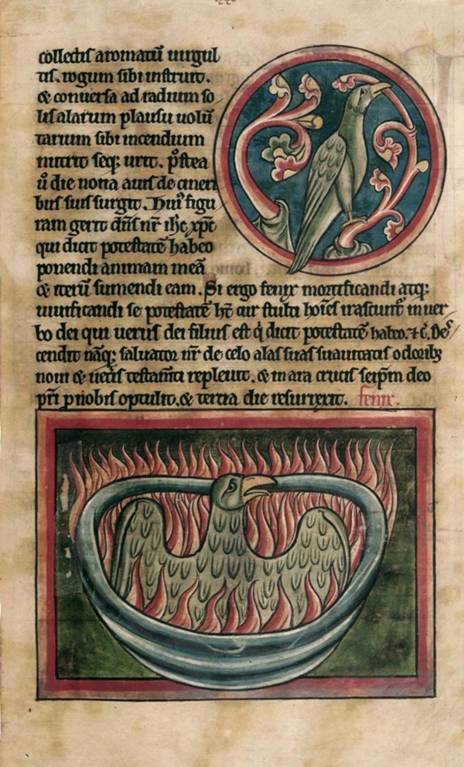 collectis aromatũ uirgul
tis. rogum sibi instruit.
& conuersa ad radium so
lis alarum plausu uolũ
tarium sibi incendium
nutrit seq; urit. p̃stea
ũ die nona auis de cineri
bus suis surgit. Huiꝰ figu
ram gerit dñs nr̃ ihc xp̃c
qui dicit potestatẽ habeo
ponendi animam meã
& iterũ sumendi eam. Si ergo fenix mortificandi atq;
uiuificandi se potestatẽ ht̃ cur stulti hoı̃es irascunt᷑ in uer
bo dei qui uerus dei filius est q̇ dicit potestatẽ habeo. ⁊ c̃. Des
cendit nãq; saluator nr̃ de celo alas suas suauitatis odoribꝫ
noui & ueteris testam̃ti repleuit. & in ara crucis seip̃m deo
pr̃i ꝓ nobis optulit. & tertia die resurrexit. fenix.